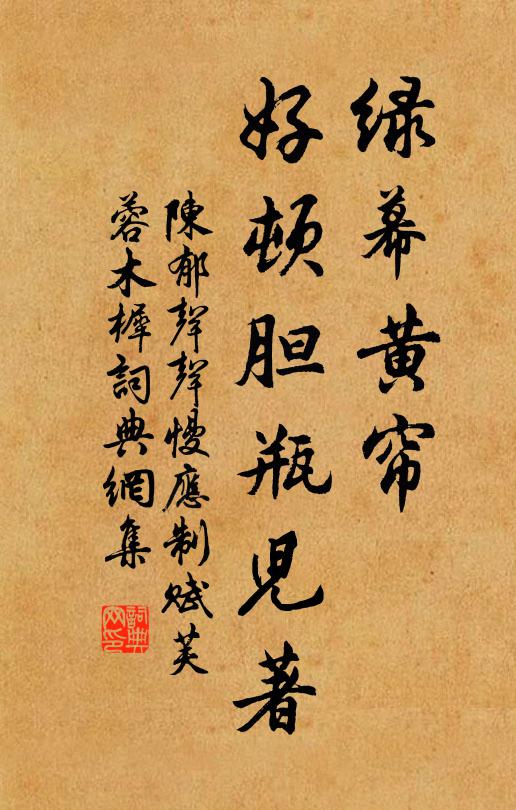 绿幕黄帘
好顿胆瓶児著
陳郁聲聲慢應制賦芙
蓉木樨詞典網集
詞典
网印